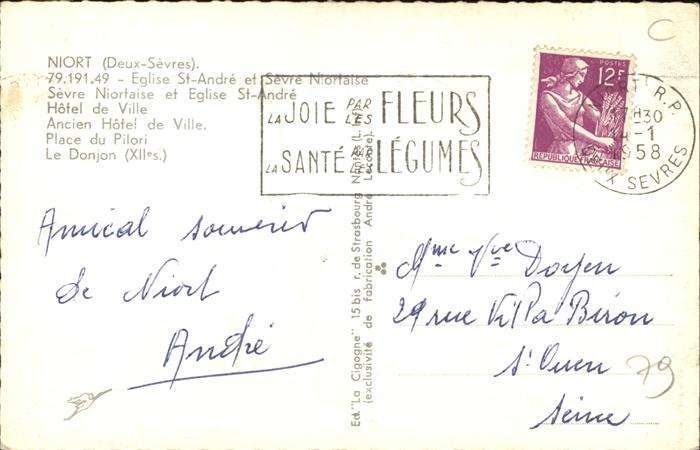 C
NIORT (Deux-Sèvres).
79.191.49 - Eglise St-André et Sèvre Niortaise
Sèvre Niortaise et Eglise St-André
Hôtel de Ville
Ancien Hôtel de Ville.
Place du Pilori
Le Donjon (XIIes.)
LA JOIE PAR LES FLEURS
LA SANTÉ PAR LES LÉGUMES
POSTES
12F
REPUBLIQUE FRANÇAISE
R.P.
H30
4-1
1958
SEVRES
Amical souvenir
de Niort
André
Ed. "La Cigogne" 15 bis r. de Strasbourg Nantes
(exclusivité de fabrication André Leconte).
Mme Vve Doyen
29 rue Villa Biron
St Ouen
Seine
79